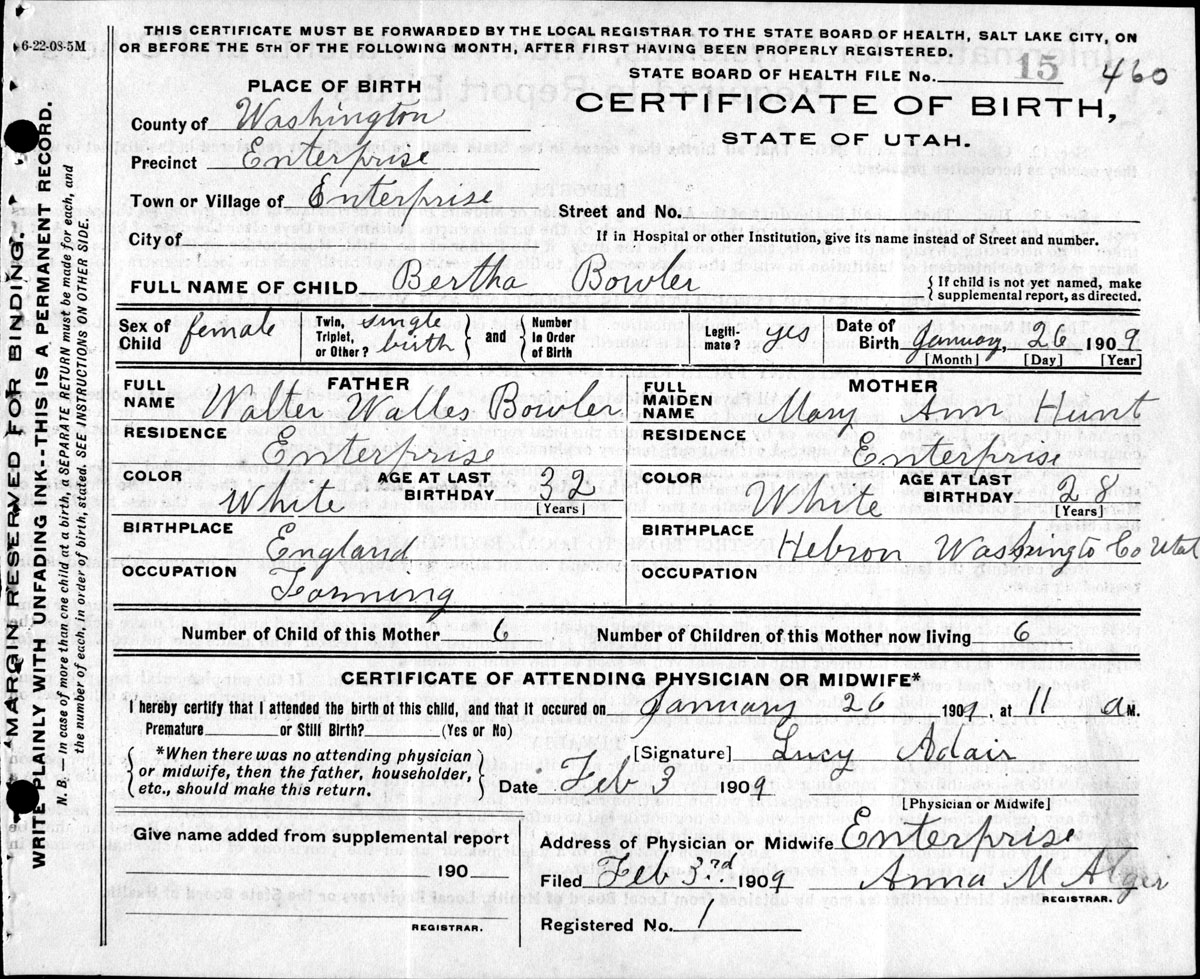 6-22-08-5M
THIS CERTIFICATE MUST BE FORWARDED BY THE LOCAL REGISTRAR TO THE STATE BOARD OF HEALTH, SALT LAKE CITY, ON
OR BEFORE THE 5TH OF THE FOLLOWING MONTH, AFTER FIRST HAVING BEEN PROPERLY REGISTERED.
STATE BOARD OF HEALTH FILE No. 15 460
PLACE OF BIRTH
CERTIFICATE OF BIRTH,
STATE OF UTAH.
County of Washington
Precinct Enterprise
Town or Village of Enterprise
Street and No.
City of
If in Hospital or other Institution, give its name instead of Street and number.
FULL NAME OF CHILD Bertha Bowler
{If child is not yet named, make
supplemental report, as directed.
Sex of Child female Twin, Triplet, or Other? single birth } and { Number in Order of Birth Legiti-mate? yes Date of Birth January, 26 1909
[Month] [Day] [Year]
FATHER
FULL NAME Walter Walles Bowler
RESIDENCE Enterprise
COLOR White AGE AT LAST BIRTHDAY 32 [Years]
BIRTHPLACE England
OCCUPATION Farming
MOTHER
FULL MAIDEN NAME Mary Ann Hunt
RESIDENCE Enterprise
COLOR White AGE AT LAST BIRTHDAY 28 [Years]
BIRTHPLACE Hebron Washington Co Utah
OCCUPATION
Number of Child of this Mother 6 Number of Children of this Mother now living 6
CERTIFICATE OF ATTENDING PHYSICIAN OR MIDWIFE*
I hereby certify that I attended the birth of this child, and that it occured on January 26 1909, at 11 a M.
Premature or Still Birth? (Yes or No)
{*When there was no attending physician
or midwife, then the father, householder,
etc., should make this return.}
[Signature] Lucy Adair
Date Feb 3 1909
[Physician or Midwife]
Give name added from supplemental report
190
REGISTRAR.
Address of Physician or Midwife Enterprise
Filed Feb 3rd 1909 Anna M Alger
REGISTRAR.
Registered No. 1
MARGIN RESERVED FOR BINDING.
WRITE PLAINLY WITH UNFADING INK.--THIS IS A PERMANENT RECORD.
N. B.—In case of more than one child at a birth, a SEPARATE RETURN must be made for each, and
the number of each, in order of birth, stated. SEE INSTRUCTIONS ON OTHER SIDE.